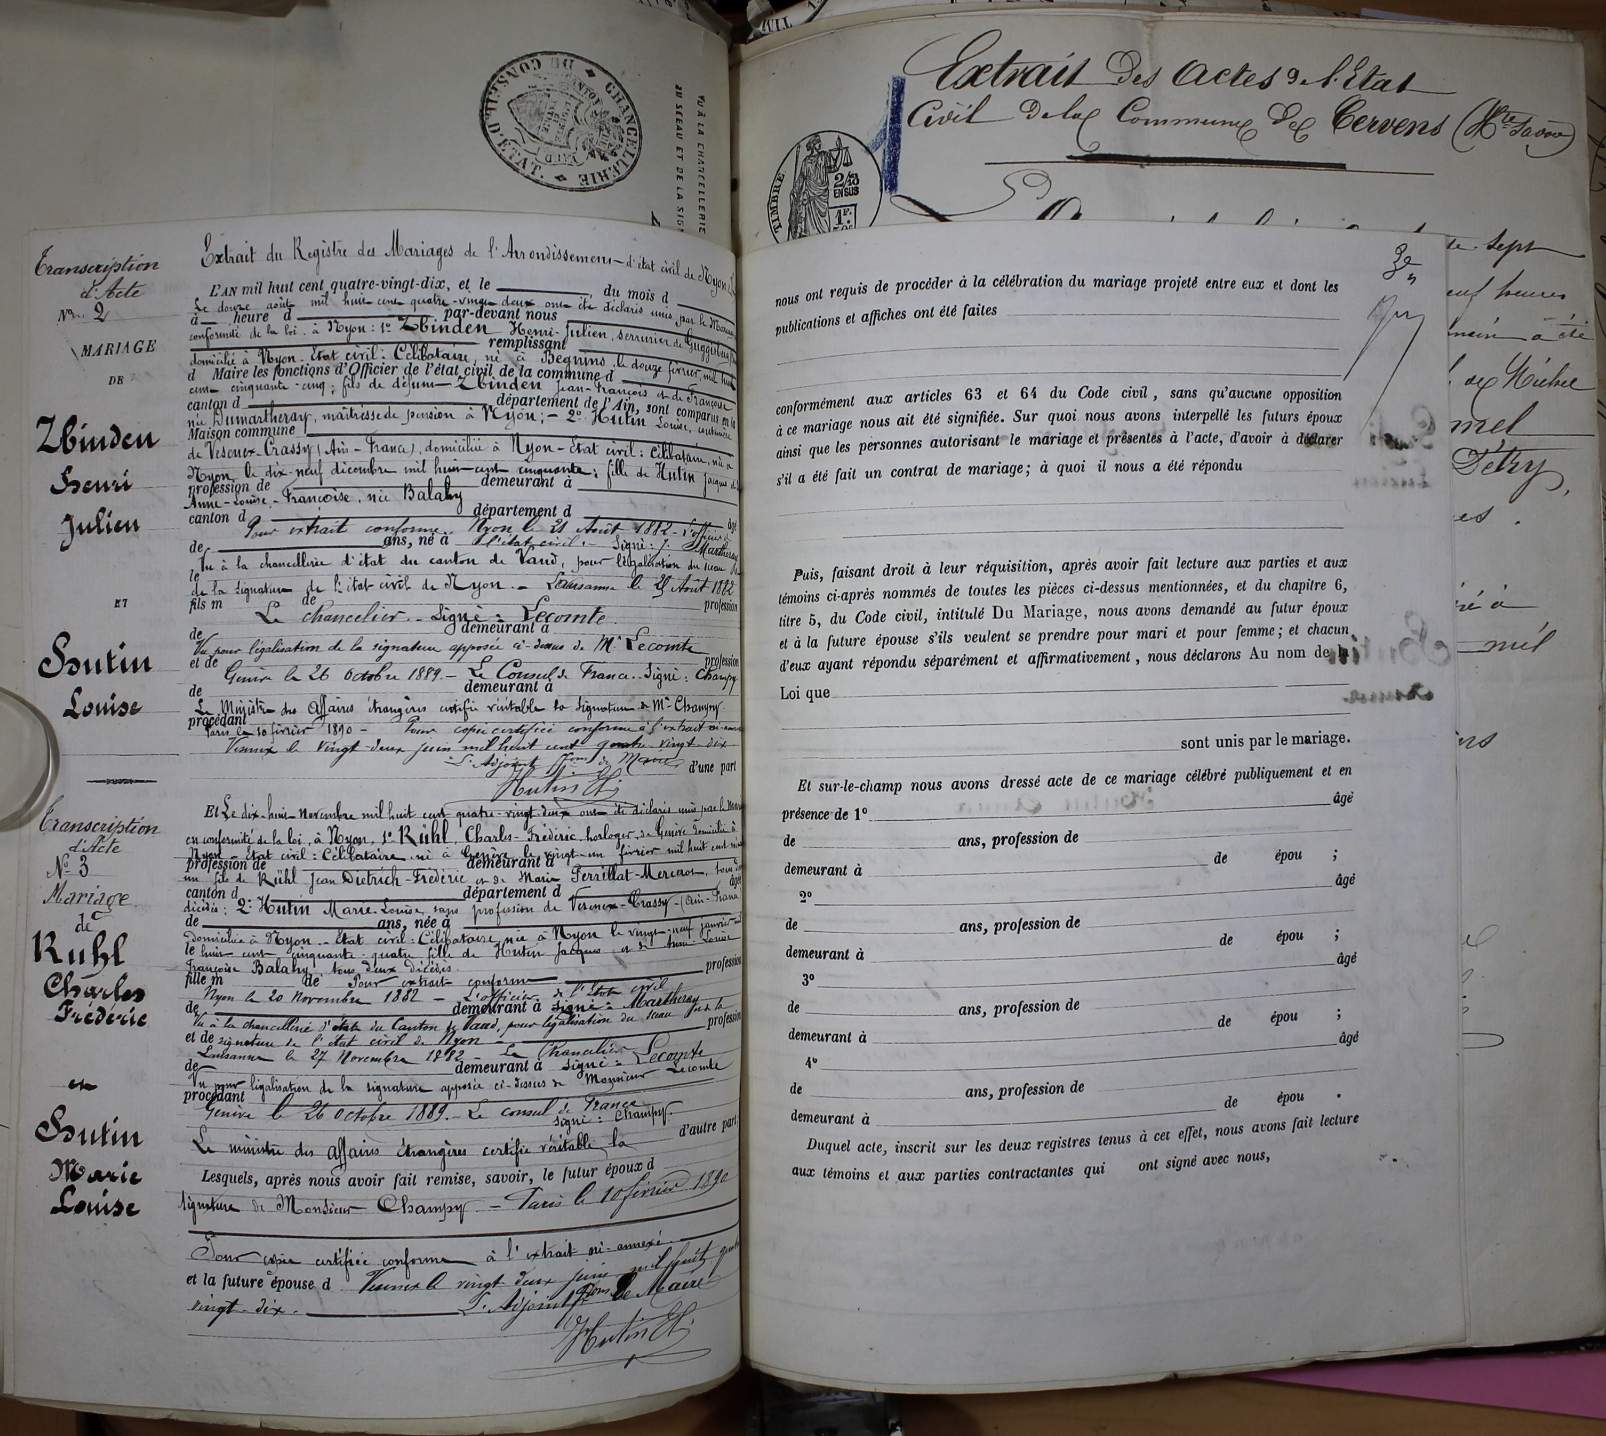 CHANCELLERIE
D'ÉTAT
DU CONSEIL
VU À LA CHANCELLERIE
AU SCEAU ET DE LA SIG
Transcription
d'Acte
No. 2
MARIAGE
DE
Zbinden
Henri
Julien
ET
Hutin
Louise
Transcription
d'Acte
No 3
Mariage
de
Rühl
Charles
Fréderic
et
Hutin
Marie
Louise
Extrait du Registre des Mariages de l'Arrondissement d'état civil de Nyon
L'AN mil huit cent quatre-vingt-dix, et le du mois d
Le douze août mil huit cent quatre-vingt deux ont été déclarés unis par le Mariage
à heure d par-devant nous
conformité de la loi à Nyon: 1º Zbinden Henri-Julien, serrurier de Guggisberg
remplissant
domicilié à Nyon. Etat civil: Célibataire, né à Begnins, le douze février mil huit
d Maire les fonctions d'Officier de l'état civil de la commune d
cent cinquante-cinq; fils de défunt Zbinden Jean-François et de Françoise
canton d département de l'Ain, sont comparus en la
née Dumartheray, maîtresse de pension à Nyon; - 2º Hutin Louise, couturière
Maison commune
de Vesenex-Crassy (Ain-France), domiciliée à Nyon-Etat civil: Célibataire, née à
Nyon le dix-neuf décembre mil huit cent cinquante; fille de Hutin Jacques et de
profession de demeurant à
Anne-Louise-Françoise, née Balahy
canton d département d
Pour extrait conforme. Nyon le 21 Août 1882 - L'officier d
de ans, né à l'état civil. - Signé: J. Martheray
Vu à la chancellerie d'état du canton de Vaud, pour légalisation du sceau
le
de la signature de l'état civil de Nyon. - Lausanne le 29 Août 1882
fils m de profession
Le chancelier - Signé: Lecomte
de demeurant à
Vu pour légalisation de la signature apposée ci-dessus de Mr Lecomte
et de profession
Genève le 26 Octobre 1889. - Le Consul de France. Signé: Champy
de demeurant à
Le Ministre des Affaires étrangères certifie véritable la signature de Mr Champy
procédant
Paris le 10 février 1890 - Pour copie certifiée conforme à l'extrait ci-annexé
Vesenex le vingt-deux juin mil huit cent quatre-vingt dix
L'Adjoint pour le Maire d'une part
Hutin
Et Le dix-huit Novembre mil huit cent quatre-vingt-deux ont été déclarés unis par le Mariage
en conformité de la loi, à Nyon, 1º Rühl, Charles-Fréderic, horloger, de Genève domicilié à
Nyon - Etat civil: Célibataire, né à Genève le vingt-un février mil huit cent
profession de demeurant à
un fils de Rühl Jean Dietrich-Frédéric et de Marie Perrillat-Mercerot, tous deux
canton d département d âgé
décédés; 2º Hutin Marie-Louise, sans profession de Vesenex-Crassy-(Ain-France
de ans, née à
domiciliée à Nyon - Etat civil: Célibataire, née à Nyon le vingt-neuf janvier mil
le huit cent cinquante-quatre fille de Hutin Jacques et de Anne-Louise
Françoise Balahy, tous deux décédés
fille m de Pour extrait conforme profession
Nyon le 20 novembre 1882 - L'officier de l'état civil
de demeurant à Signé: Martheray
Vu à la chancellerie d'état du Canton de Vaud, pour légalisation du sceau
profession
et de signature de l'état civil de Nyon
Lausanne le 27 Novembre 1882 - Le Chancelier
de demeurant à Signé: Lecomte
Vu pour légalisation de la signature apposée ci-dessus de Monsieur Lecomte
procédant
Genève le 26 Octobre 1889. - Le consul de France
Signé: Champy.
Le ministre des affaires étrangères certifie véritable la d'autre part
Lesquels, après nous avoir fait remise, savoir, le futur époux d
signature de Monsieur Champy - Paris le 10 février 1890
Pour copie certifiée conforme à l'extrait ci-annexé
et la future épouse d Vesenex le vingt deux juin mil huit quatre
vingt-dix. L'Adjoint pour le Maire
Hutin
Extrait des Actes de l'Etat
Civil de la Commune de Cervens (Hte Savoie)
TIMBRE
2/10
EN SUS
1F.
te-sept
neuf heures
a été
de Michel
Pétry,
mil
nous ont requis de procéder à la célébration du mariage projeté entre eux et dont les
publications et affiches ont été faites
conformément aux articles 63 et 64 du Code civil, sans qu'aucune opposition
à ce mariage nous ait été signifiée. Sur quoi nous avons interpellé les futurs époux
ainsi que les personnes autorisant le mariage et présentes à l'acte, d'avoir à déclarer
s'il a été fait un contrat de mariage; à quoi il nous a été répondu
Puis, faisant droit à leur réquisition, après avoir fait lecture aux parties et aux
témoins ci-après nommés de toutes les pièces ci-dessus mentionnées, et du chapitre 6,
titre 5, du Code civil, intitulé Du Mariage, nous avons demandé au futur époux
et à la future épouse s'ils veulent se prendre pour mari et pour femme; et chacun
d'eux ayant répondu séparément et affirmativement, nous déclarons Au nom de la
Loi que
sont unis par le mariage.
Et sur-le-champ nous avons dressé acte de ce mariage célébré publiquement et en
présence de 1º âgé
de ans, profession de
demeurant à de épou ;
2º âgé
de ans, profession de
demeurant à de épou ;
3º âgé
de ans, profession de
demeurant à de épou ;
4º âgé
de ans, profession de
demeurant à de épou .
Duquel acte, inscrit sur les deux registres tenus à cet effet, nous avons fait lecture
aux témoins et aux parties contractantes qui ont signé avec nous,